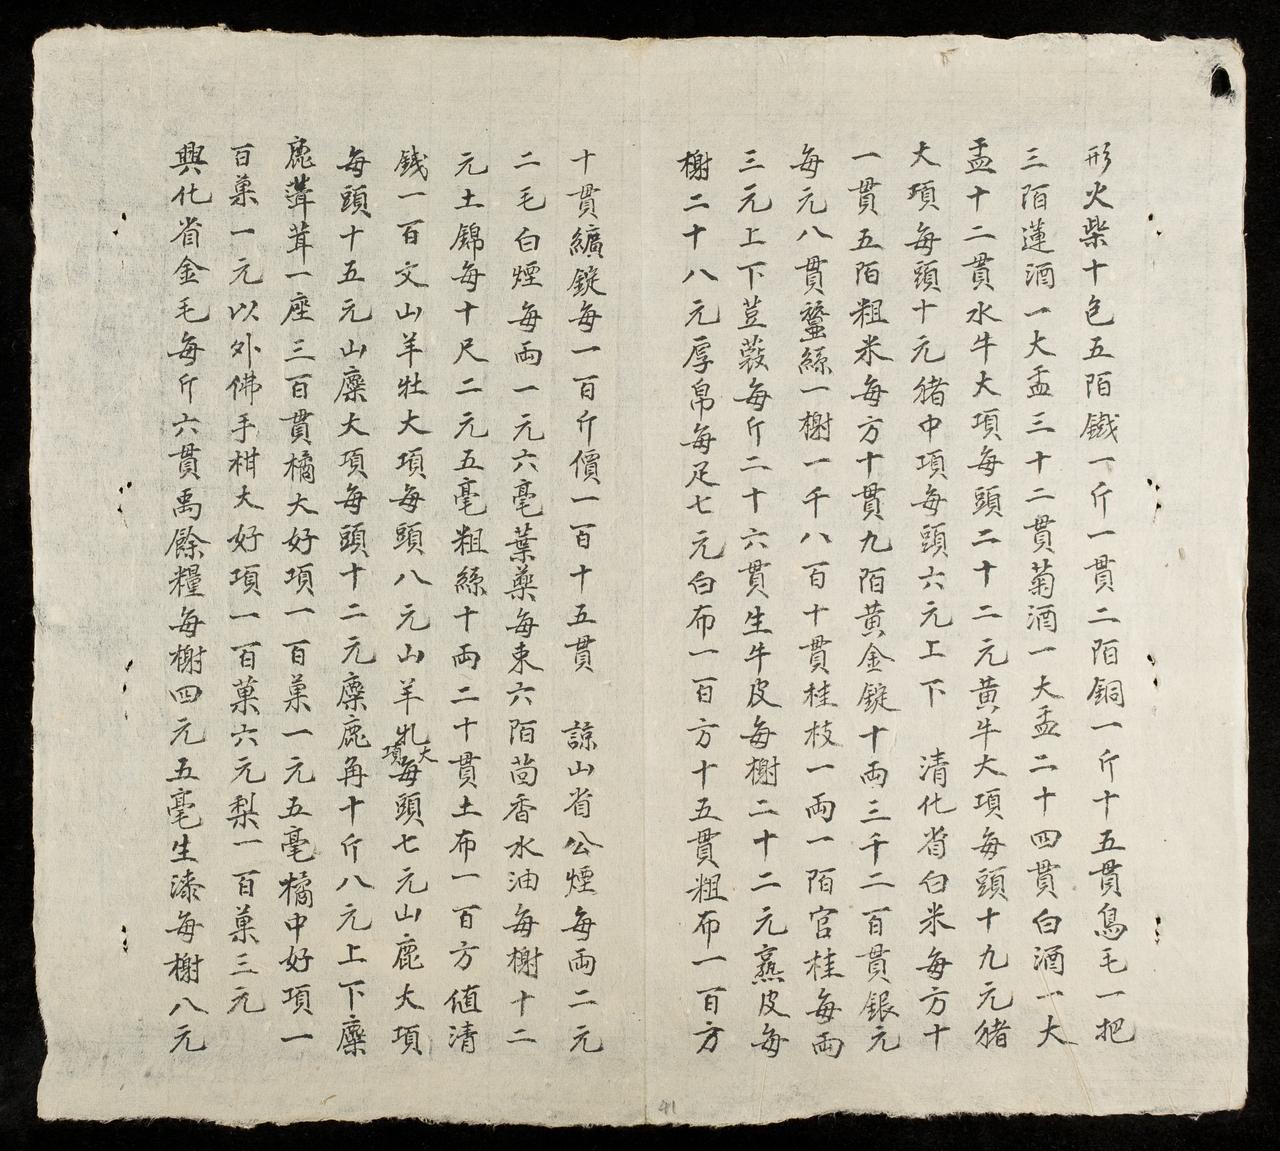 形火柴十色五陌鐵一斤一貫二陌銅一斤十五貫鳥毛一把
三陌蓮酒一大盂三十二貫菊酒一大盂二十四貫白酒一大
盂十二貫水牛大項每頭二十二元黄牛大項每頭十九元猪
大項每頭十元猪中項每頭六元上下　清化省白米每方十
一貫五陌粗米每方十貫九陌黄金錠十両三千二百貫銀元
每元八貫蚕絲一榭一千八百十貫桂枝一両一陌官桂每両
三元上下荳蔲每斤二十六貫生牛皮每榭二十二元熟皮每
榭二十八元厚帛每疋七元白布一百方十五貫粗布一百方
十貫纊錠每一百斤價一百十五貫　諒山省公煙每両二元
二毛白煙每両一元六毫葉藥每束六陌茴香水油每榭十二
元土錦每十尺二元五毫粗絲十両二十貫土布一百方値清
錢一百文山羊牡大項每頭八元山羊牝大項每頭七元山鹿大項
每頭十五元山麋大項每頭十二元麋鹿角十斤八元上下麋
鹿茸一座三百貫橘大好項一百菓一元五毫橘中好項一
百菓一元以外佛手柑大好項一百菓六元梨一百菓三元
興化省金毛每斤六貫禹餘糧每榭四元五毫生漆每榭八元
41